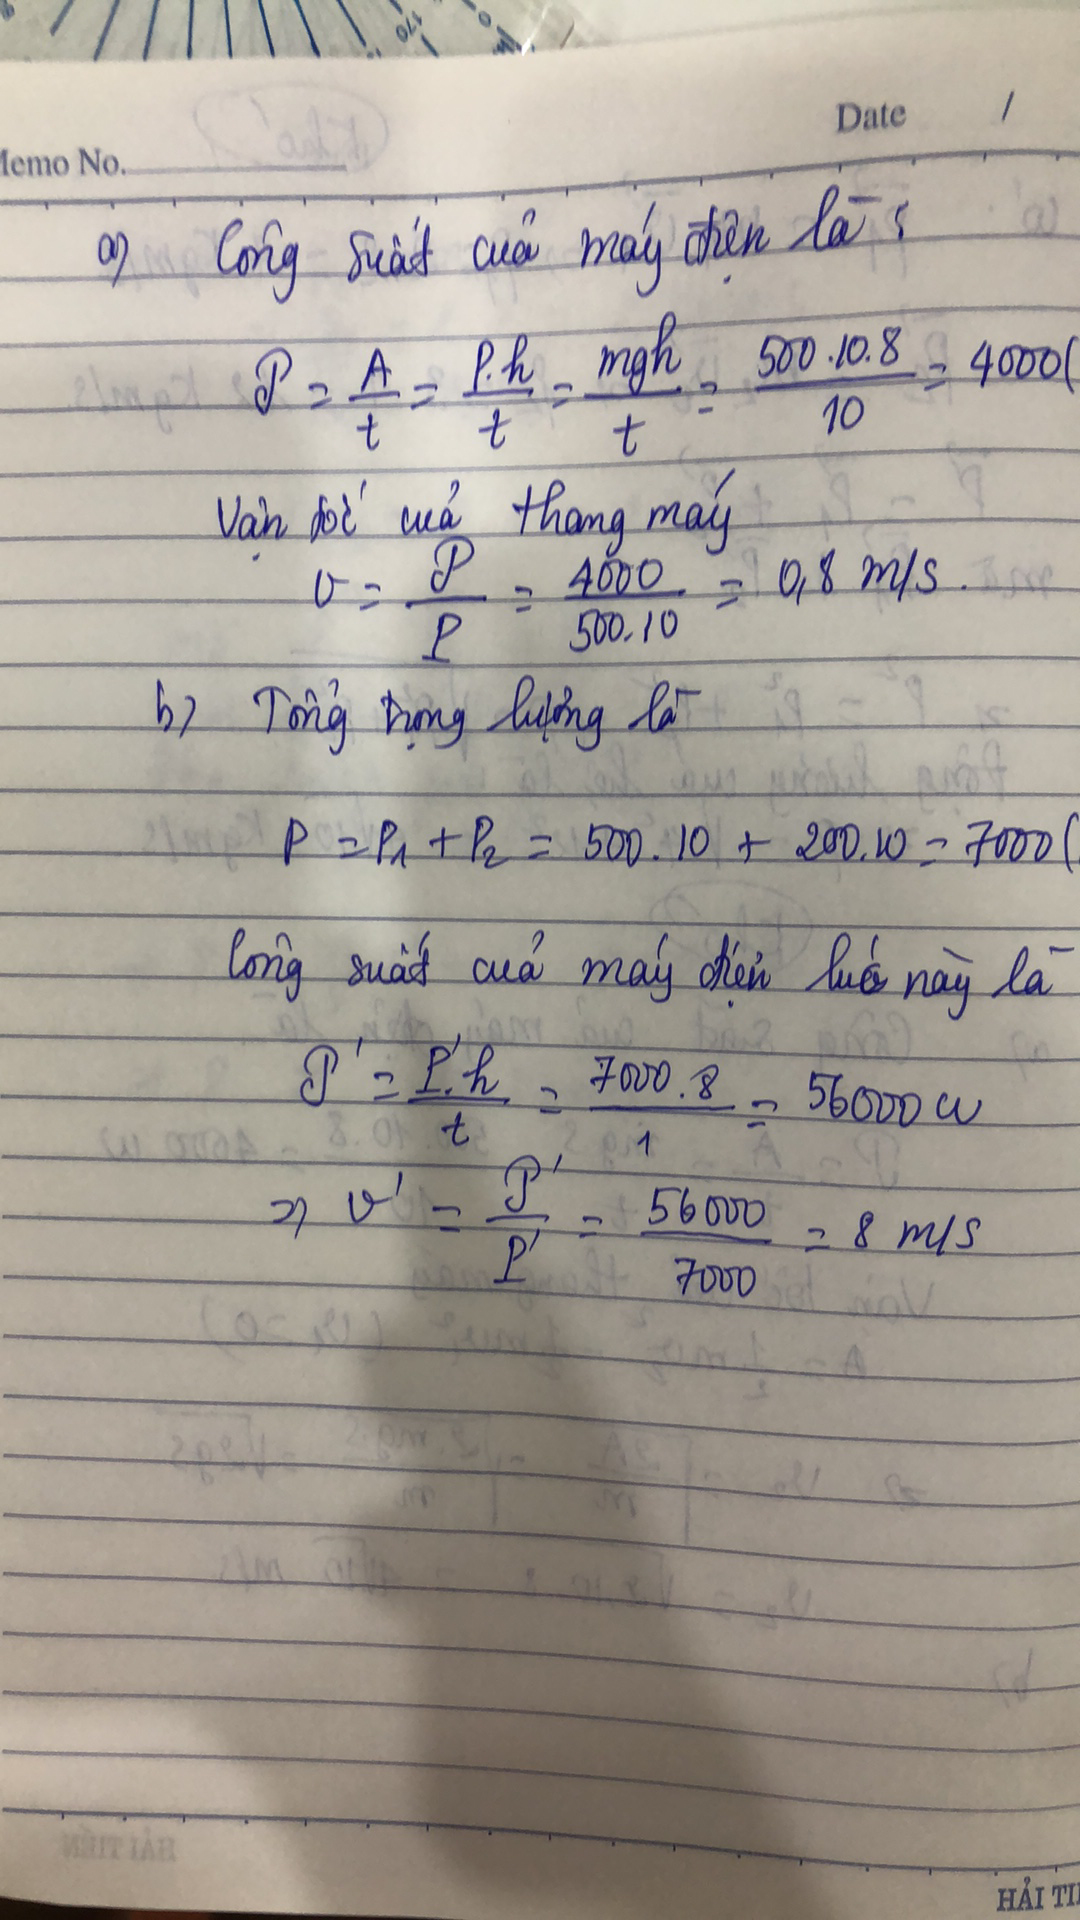 Date /
Memo No.
a) Công suất của máy điện là :
P = A/t = P.h/t = mgh/t = 500.10.8/10 = 4000(
Vận tốc của thang máy
v = P/P = 4000/500.10 = 0,8 m/s.
b) Tổng trọng lượng là
P = P₁ + P₂ = 500.10 + 200.10 = 7000(
Công suất của máy điện lúc này là
P' = P'.h/t = 7000.8/1 = 56000 W
=> v' = P'/P' = 56000/7000 = 8 m/s
HẢI TI